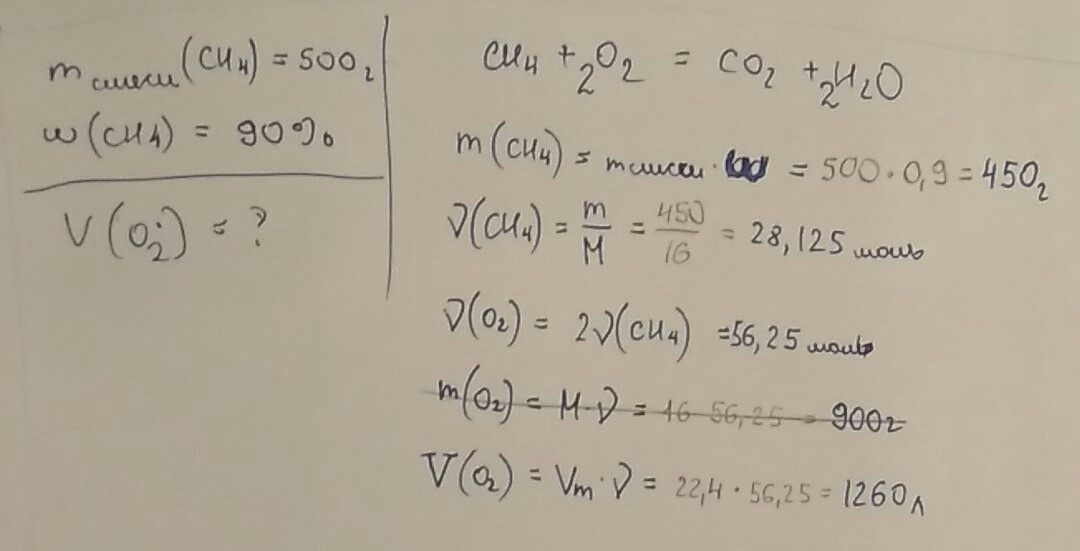 m смеси (CH4) = 500г
w (CH4) = 90%
V (O2) = ?
CH4 + 2O2 = CO2 + 2H2O
m (CH4) = m смеси · ω = 500 · 0,9 = 450г
ν(CH4) = m/M = 450/16 = 28,125 моль
ν(O2) = 2ν(CH4) = 56,25 моль
m(O2) = M · ν = 16 · 56,25 = 900г
V(O2) = Vm · ν = 22,4 · 56,25 = 1260 л